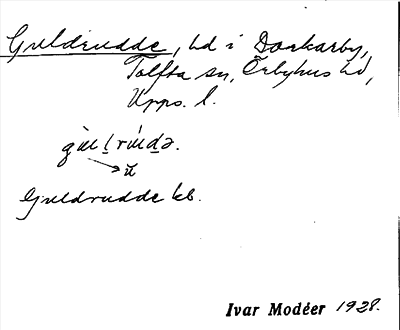 Guldrudde, hd i Domkarby,
Tolfta sn, Örbyhus hd,
Upps. l.
gùl̠rúd̠ə.
→ŭ
Guldrudde kb.
Ivar Modéer 1928.